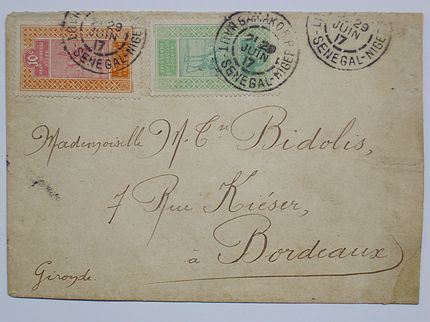 29
JUIN
17
SENEGAL-NIGER
10c
29
JUIN
17
SENEGAL-NIGER
29
JUIN
17
SENEGAL-NIGE
Mademoiselle M. Bidolis,
7 Rue Kiéser,
à Bordeaux
Gironde.